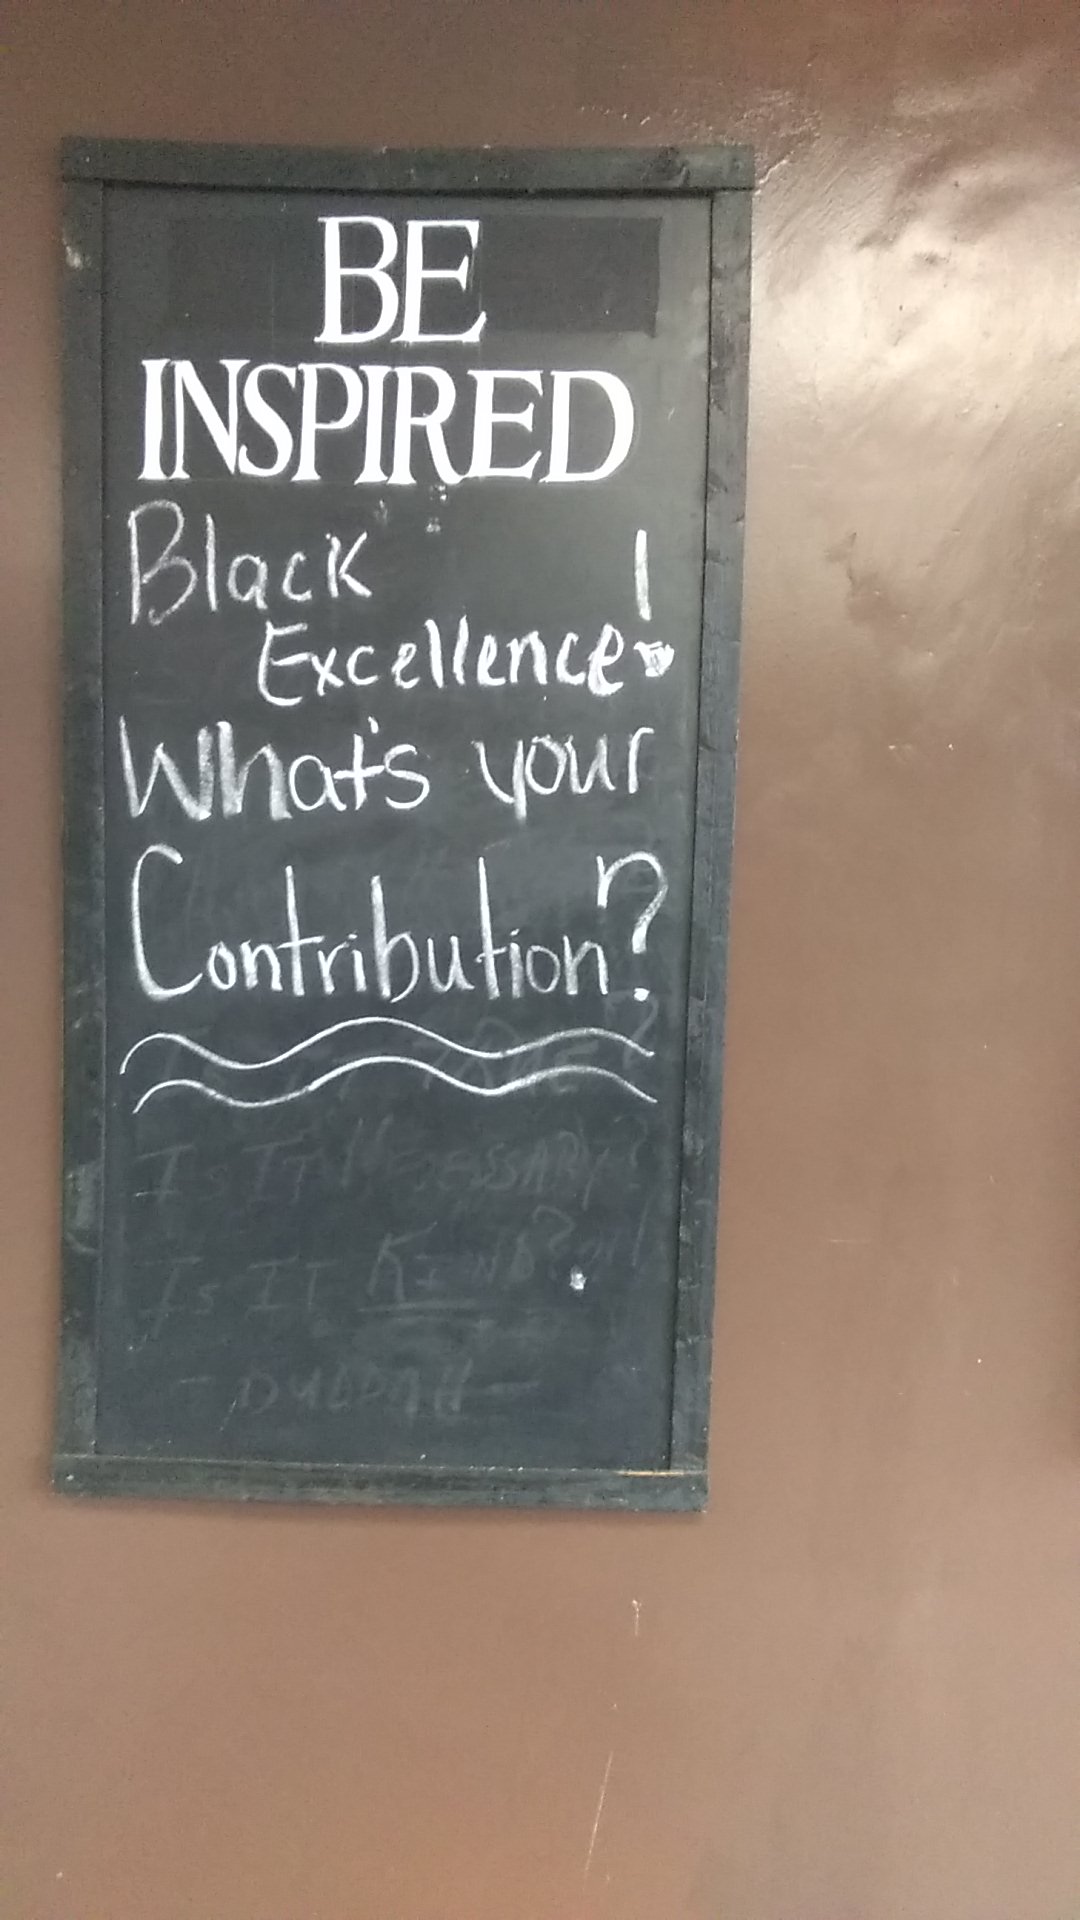 BE
INSPIRED
Black
Excellence!
What's your
Contribution?
Is IT TRUE?
Is IT NECESSARY?
Is IT KIND?
- BUDDAH -